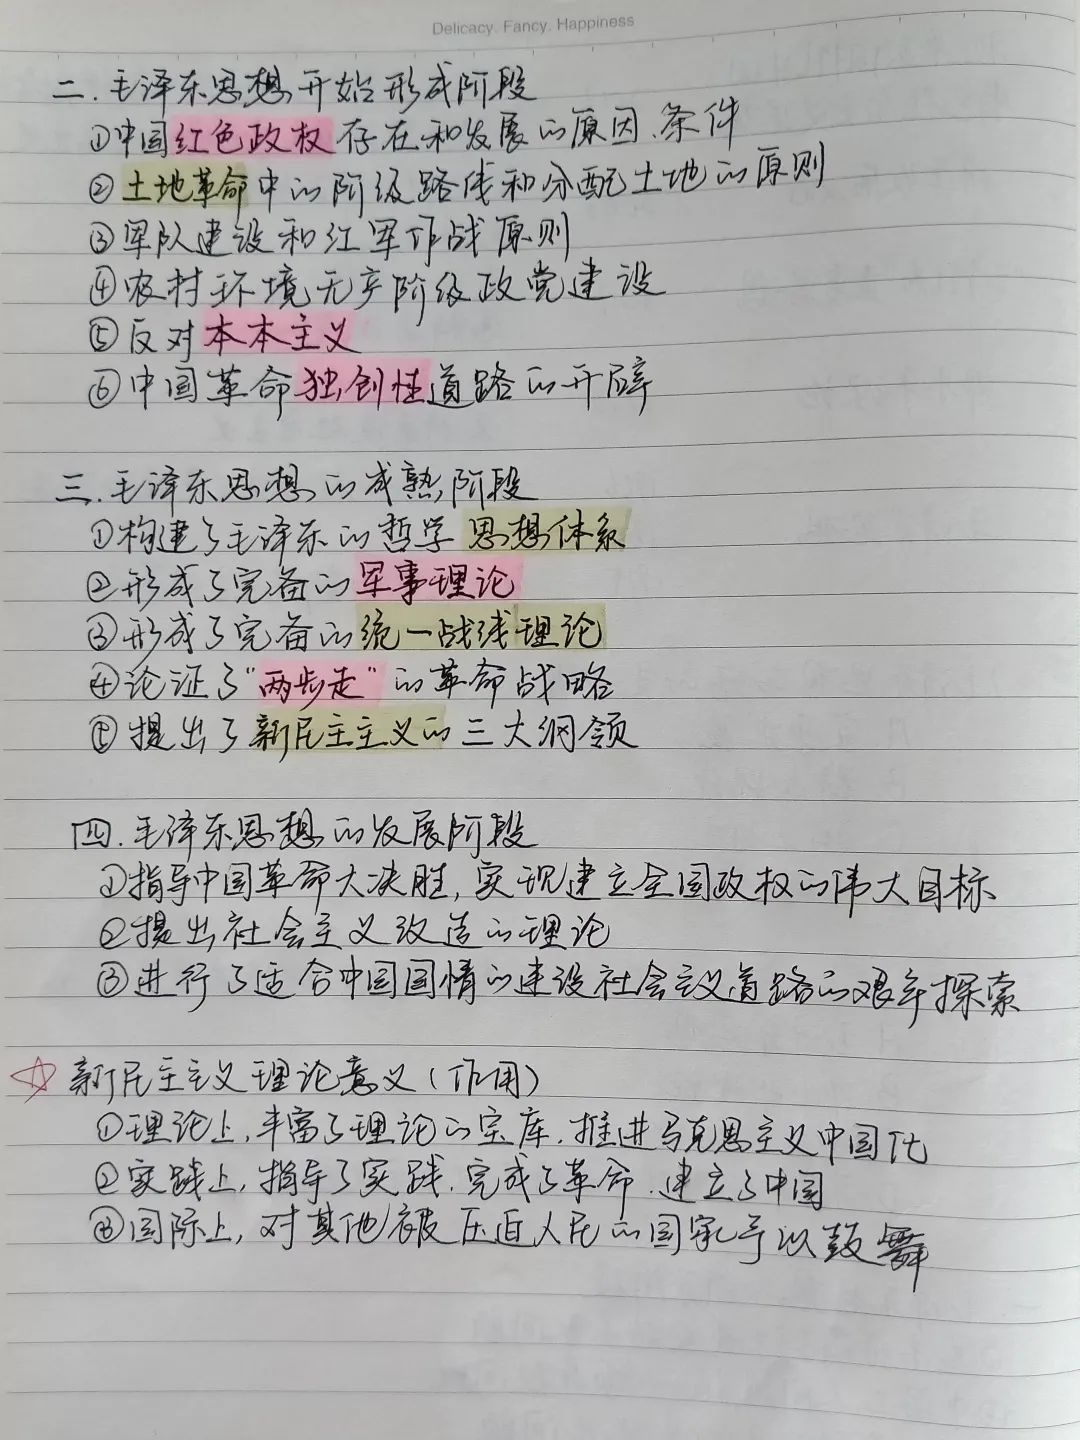 Delicacy. Fancy. Happiness
二.毛泽东思想开始形成阶段
①中国红色政权存在和发展的原因、条件
②土地革命中的阶级路线和分配土地的原则
③军队建设和红军作战原则
④农村环境无产阶级政党建设
⑤反对本本主义
⑥中国革命独创性道路的开辟
三.毛泽东思想的成熟阶段
①构建了毛泽东的哲学思想体系
②形成了完备的军事理论
③形成了完备的统一战线理论
④论证了"两步走"的革命战略
⑤提出了新民主主义的三大纲领
四.毛泽东思想的发展阶段
①指导中国革命大决胜,实现建立全国政权的伟大目标
②提出社会主义改造的理论
③进行了适合中国国情的建设社会主义道路的艰辛探索
☆新民主主义理论意义(作用)
①理论上,丰富了理论的宝库,推进马克思主义中国化
②实践上,指导了实践,完成了革命,建立了中国
③国际上,对其他被压迫人民的国家予以鼓舞